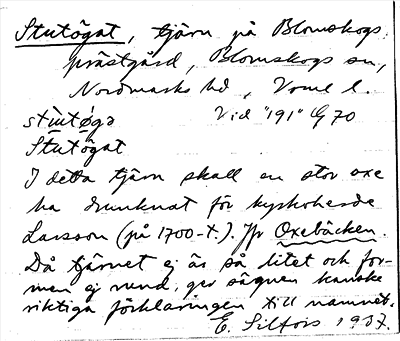 Stutögat, tjärn på Blomskogs
prästgård, Blomskogs sn,
Nordmarks hd, Vrml l.
Vid "191" G 70
stùtø̀gə
Stutögat
I detta tjärn skall en stor oxe
ha drunknat för kyrkoherde
Larsson (på 1700-t.). Jfr Oxebäcken.
Då tjärnet ej är så litet och for-
men ej rund, ger sägnen kanske
riktiga förklaringen till namnet.
E. Silfors 1937.